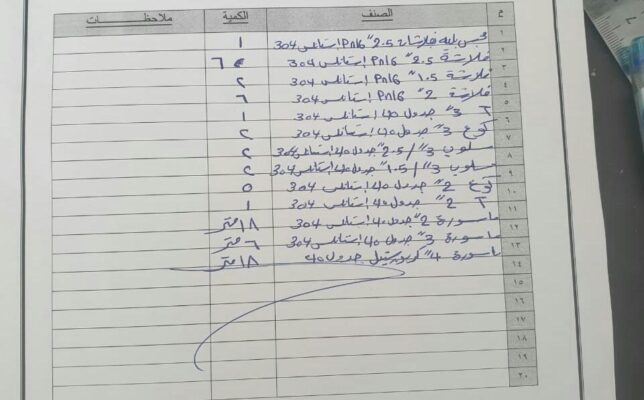 م الصنف الكمية ملاحظات
١ محبس بليه فلانشات 2.5" PN16 استانلس 304 ١
٢ فلانشة 2.5" PN16 استانلس 304 ٦
٣ فلانشة 1.5" PN16 استانلس 304 ٢
٤ فلانشة 2" PN16 استانلس 304 ٦
٥ T 3" جدول 40 استانلس 304 ١
٦ كوع 3" جدول 40 استانلس 304 ٢
٧ مسلوب 3"/2.5" جدول 40 استانلس 304 ٢
٨ مسلوب 3"/1.5" جدول 40 استانلس 304 ٢
٩ كوع 2" جدول 40 استانلس 304 ٥
١٠ T 2" جدول 40 استانلس 304 ١
١١ ماسورة 2" جدول 40 استانلس 304 ١٨ متر
١٢ ماسورة 3" جدول 40 استانلس 304 ٦ متر
١٣ ماسورة 4" كربون ستيل جدول 40 ١٨ متر
١٤
١٥
١٦
١٧
١٨
١٩
٢٠